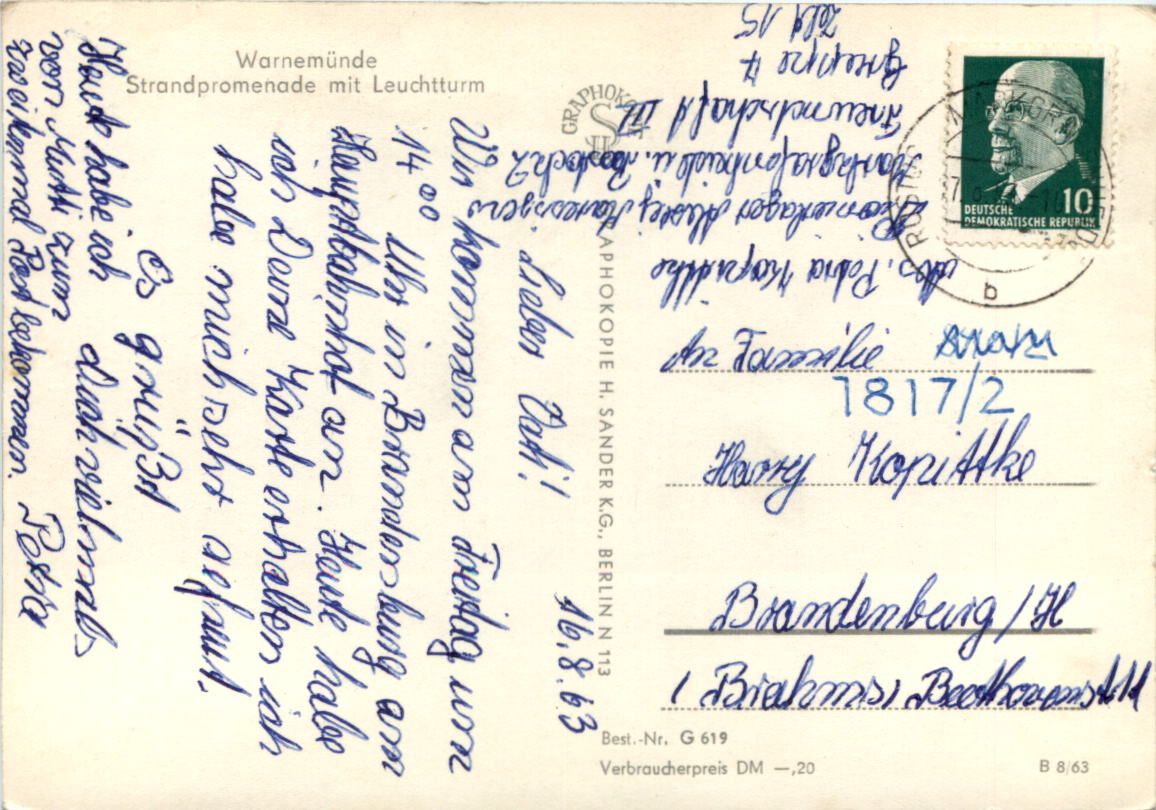 Warnemünde
Strandpromenade mit Leuchtturm
GRAPHOKOPIE
H S
GRAPHOKOPIE H. SANDER K.G., BERLIN N 113
16.8.63
Lieber Vati!
Wir kommen am Freitag um
14 00 Uhr in Brandenburg am
Hauptbahnhof an. Heute habe
ich Deine Karte erhalten ich
habe mich sehr gefreut.
Es grüßt
dich vielmals
Petra
Heute habe ich
von Mutti zum
zweitenmal Post bekommen.
Abs. Petra Kopittke
Pionierlager
Markgrafenheide ü. Rostock 2
Freundschaft III
Gruppe 7
Zelt 15
ROSTOCK
b
10
DEUTSCHE
DEMOKRATISCHE REPUBLIK
An Familie
1817/2
Harry Kopittke
Brandenburg/H
Brahms, Beethovenstr.
Best.-Nr. G 619
Verbraucherpreis DM —,20
B 8/63